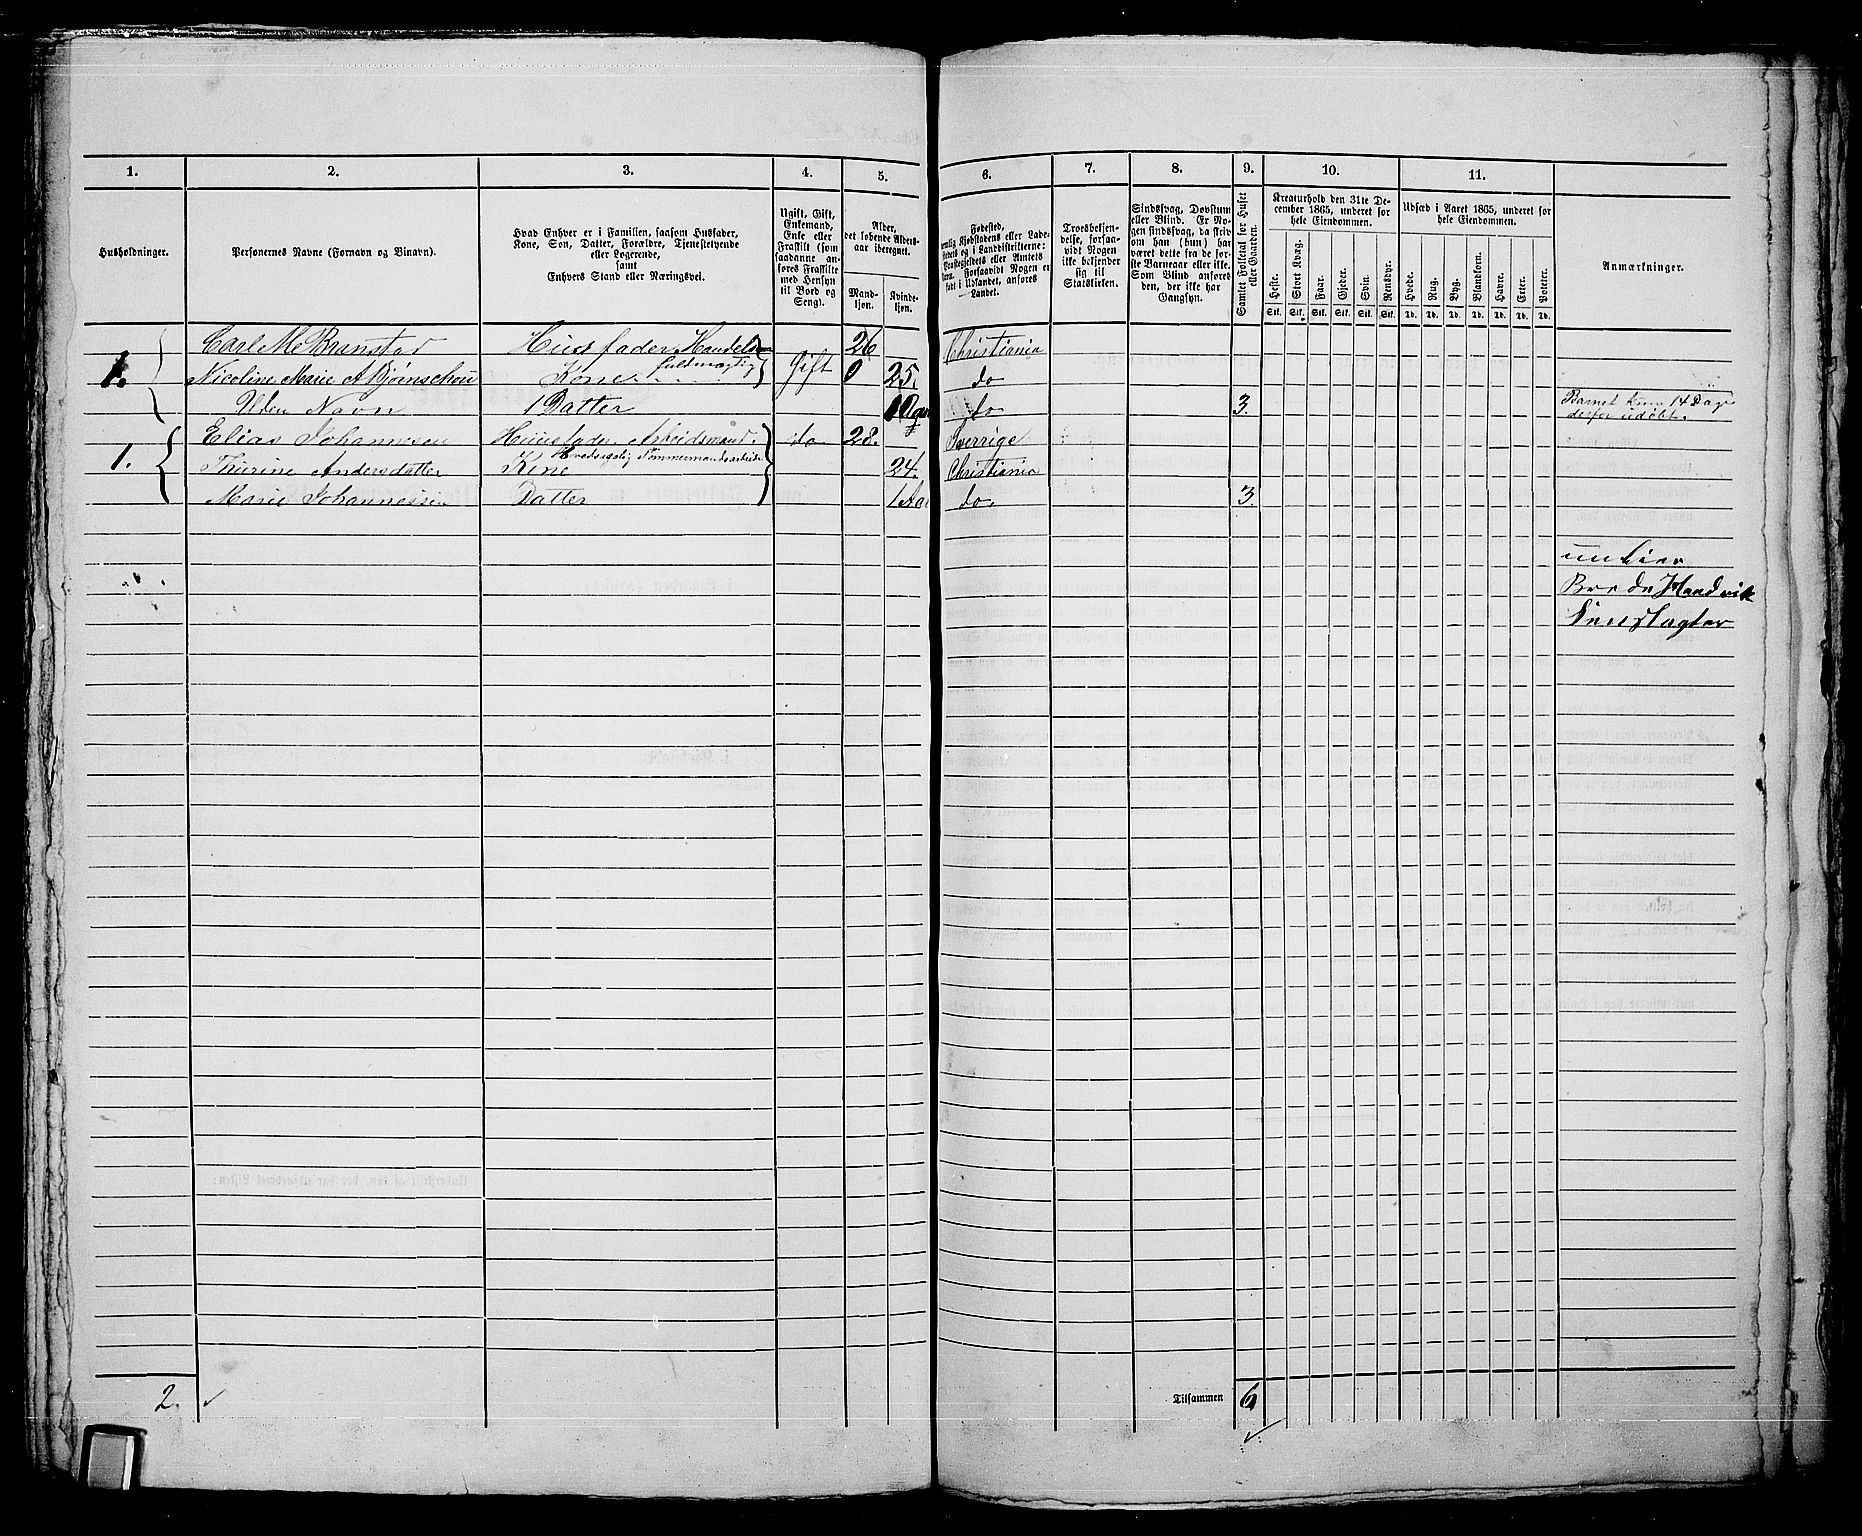 1. 2. 3. 4. 5. 6. 7. 8. 9. 10. 11.
Husholdninger.
Personernes Navne (Fornavn og Binavn).
Hvad Enhver er i Familien, saasom Husfader,
Kone, Son, Datter, Forældre, Tjenestetyende
eller Logerende,
samt
Enhvers Stand eller Næringsvei.
Ugift, Gift,
Enkemand,
Enke eller
Fraskilt (som
saadanne an-
føres Fraskilte
med Hensyn
til Bord og
Seng).
Alder,
det løbende Alders-
aar iberegnet.
Mand-
kjøn.
Kvinde-
kjøn.
Fødested,
Forsaavidt Nogen er
født i Udlandet, anføres
Landet.
Troesbekjen-
delse, forsaa-
vidt Nogen
ikke bekjender
sig til
Statskirken.
Sindssvag, Døvstum
eller Blind. Er No-
gen sindssvag, da skriv
om han (hun) har
været dette fra de før-
ste Barneaar eller ikke.
Som Blind anføres
den, der ikke har
Gangsyn.
Samlet Folketal for Huset
eller Gaarden.
Kreaturhold den 31te De-
cember 1865, underet for
hele Eiendommen.
Heste. Stort Kvæg. Faar. Gjeder. Svin. Rensdyr.
Stk. Stk. Stk. Stk. Stk. Stk.
Udsæd i Aaret 1865, underet for
hele Eiendommen.
Hvede. Rug. Byg. Blandkorn. Havre. Erter. Poteter.
Td. Td. Td. Td. Td. Td. Td.
Anmærkninger.
Carl M Branstad Husfader, Handels- 26 Christiania
fuldmægtig
1. Nicoline Marie A Bjørnschou Kone Gift 0 25. do
Uden Navn 1 Datter do 3. Barnet kun 14 Dage
derfor udøbt.
Elias Johannesen Huusfader Arbeidsmand. do 28. Sverrige
Hovedsagelig Tømmermandsarbeide
1. Thurine Andersdatter Kone 24. Christiania
Marie Johannessen Datter 1 do. 3.
2.
Tilsammen 6